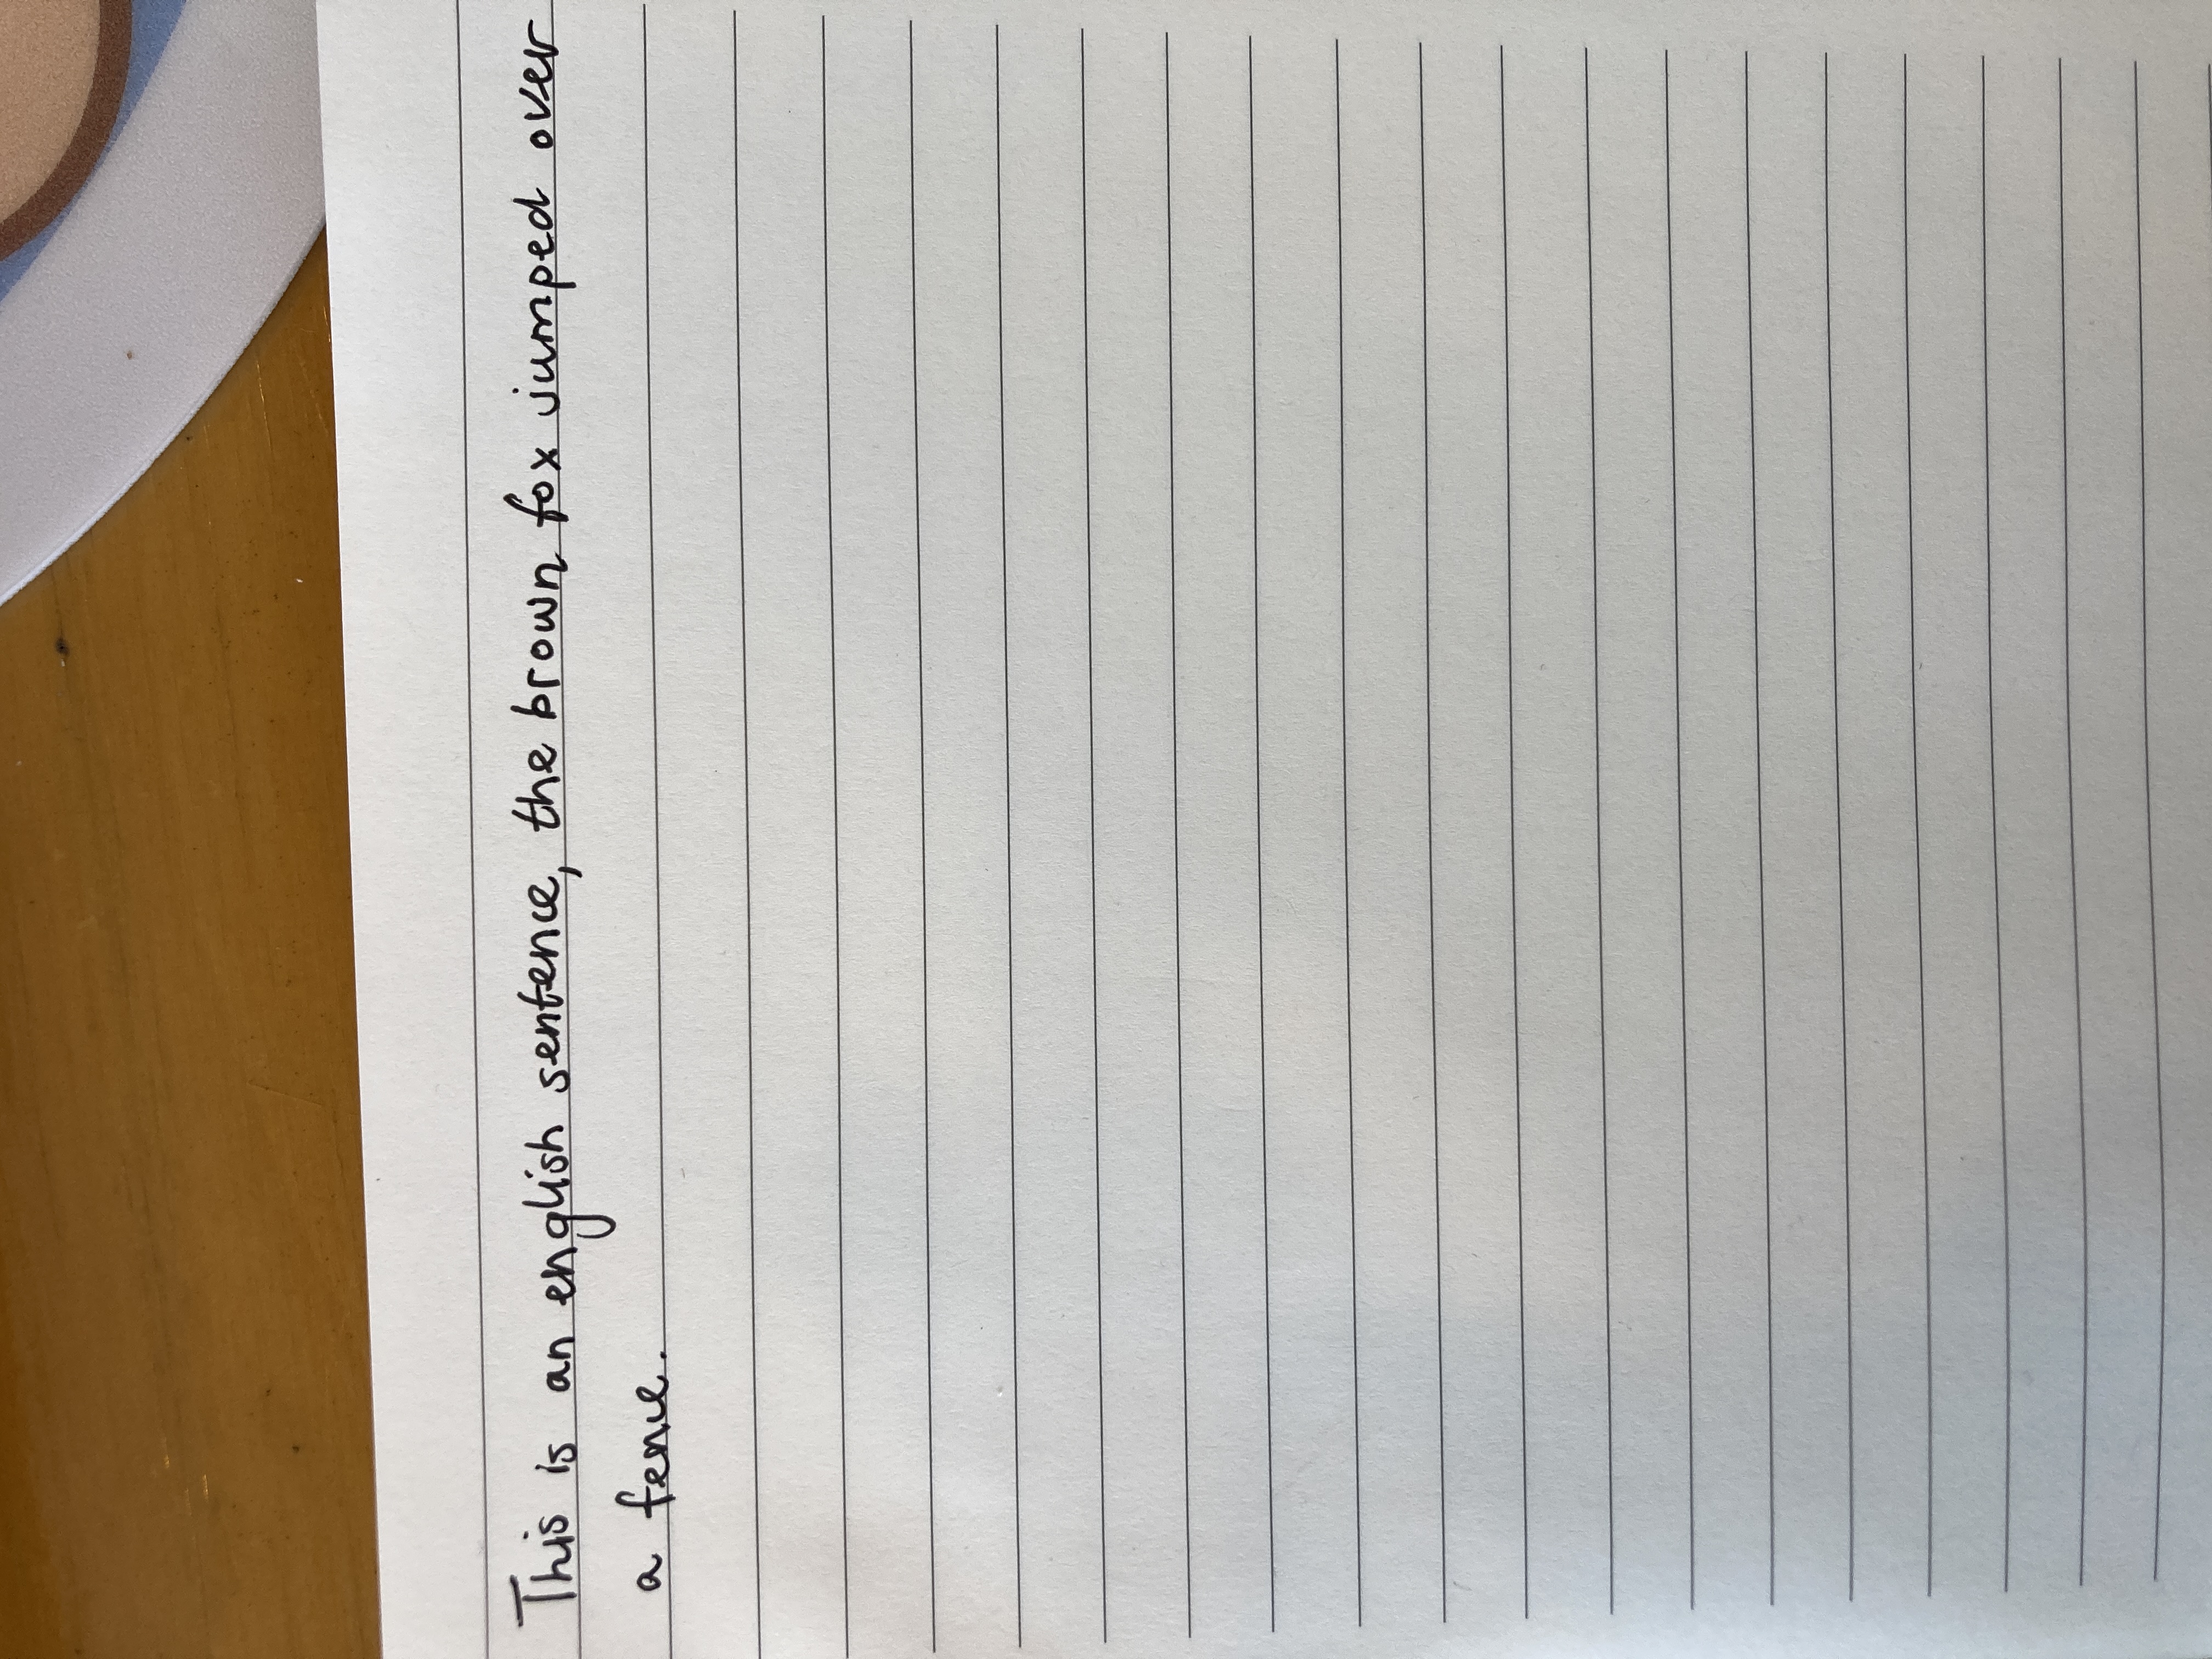 This is an english sentence, the brown fox jumped over
a fence.